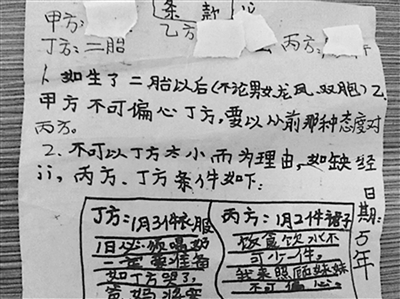 条款
甲方:
乙方
丁方:二胎
丙方:
1.如生了二胎以后(不论男女龙凤.双胞)乙.
甲方不可偏心丁方,要以从前那种态度对
丙方。
2.不可以丁方太小而为理由,如缺经
丙方、丁方条件如下:
丁方:1月3件衣服
1日必须喝奶
一定要准备
如丁方哭了,
爸妈
丙方:1月2件裙子
饮食饮水不
可少一件。
我来照顾妹妹
不可偏心。
日期:5年